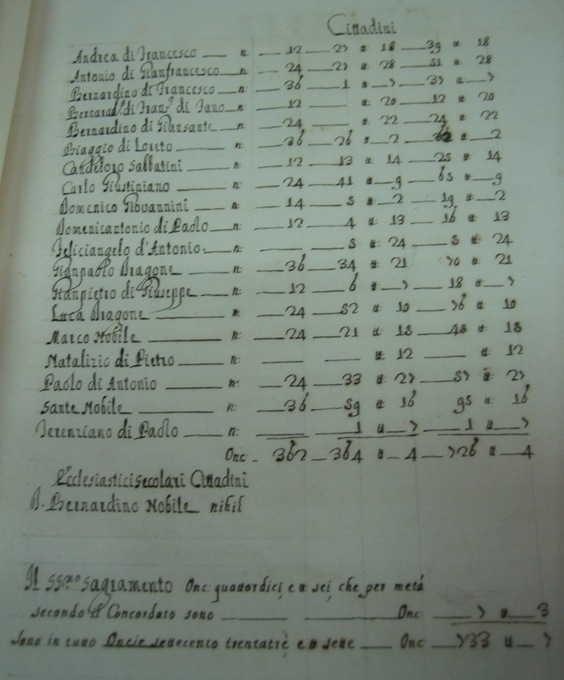 Cittadini
Andrea di Francesco — n: — 12 — 27 u: 18 — 39 u: 18
Antonio di Gianfrancesco — n: — 24 — 27 u: 28 — 51 u: 28
Bernardino di Francesco — n: — 36 — 1 u: — 7 — 37 u: — 7
di Jano — n: — 12 u: 20 — 12 u: 20
Bernardino di Giansante — n: — 24 u: 22 — 24 u: 22
Biaggio di Loreto — n: — 36 — 26 u: — 2 — 62 u: — 2
Candeloro Sabbatini — n: — 12 — 13 u: 14 — 25 u: 14
Carlo Giustiniano — n: — 24 — 41 u: — 9 — 65 u: — 9
Domenico Giovannini — n: — 14 — 5 u: — 2 — 19 u: — 2
Domenicantonio di Paolo — n: — 12 — 4 u: 13 — 16 u: 13
Feliciangelo d'Antonio — n: — — 5 u: 24 — 5 u: 24
Gianpaolo Dragone — n: — 36 — 34 u: 21 — 70 u: 21
Gianpietro di Giuseppe — n: — 12 — 6 u: — 7 — 18 u: — 7
Luca Dragone — n: — 24 — 52 u: 10 — 76 u: 10
Marco Nobile — n: — 24 — 21 u: 18 — 45 u: 18
Natalizio di Pietro — n: — — u: 12 — u: 12
Paolo di Antonio — n: — 24 — 33 u: 27 — 57 u: 27
Sante Nobile — n: — 36 — 59 u: 16 — 95 u: 16
Terenziano di Paolo — n: — — 1 u: — 7 — 1 u: — 7
Onc — 362 — 364 u: — 4 — 726 u: — 4
Ecclesiastici Secolari Cittadini
D. Bernardino Nobile nihil
Il SSmo Sagramento Onc: quattordici, e u: sei, che per metà
secondo il Concordato sono — — Onc — 7 u: — 3
Sono in tutto Oncie settecento trentatrè e u: sette — Onc — 733 u: — 7